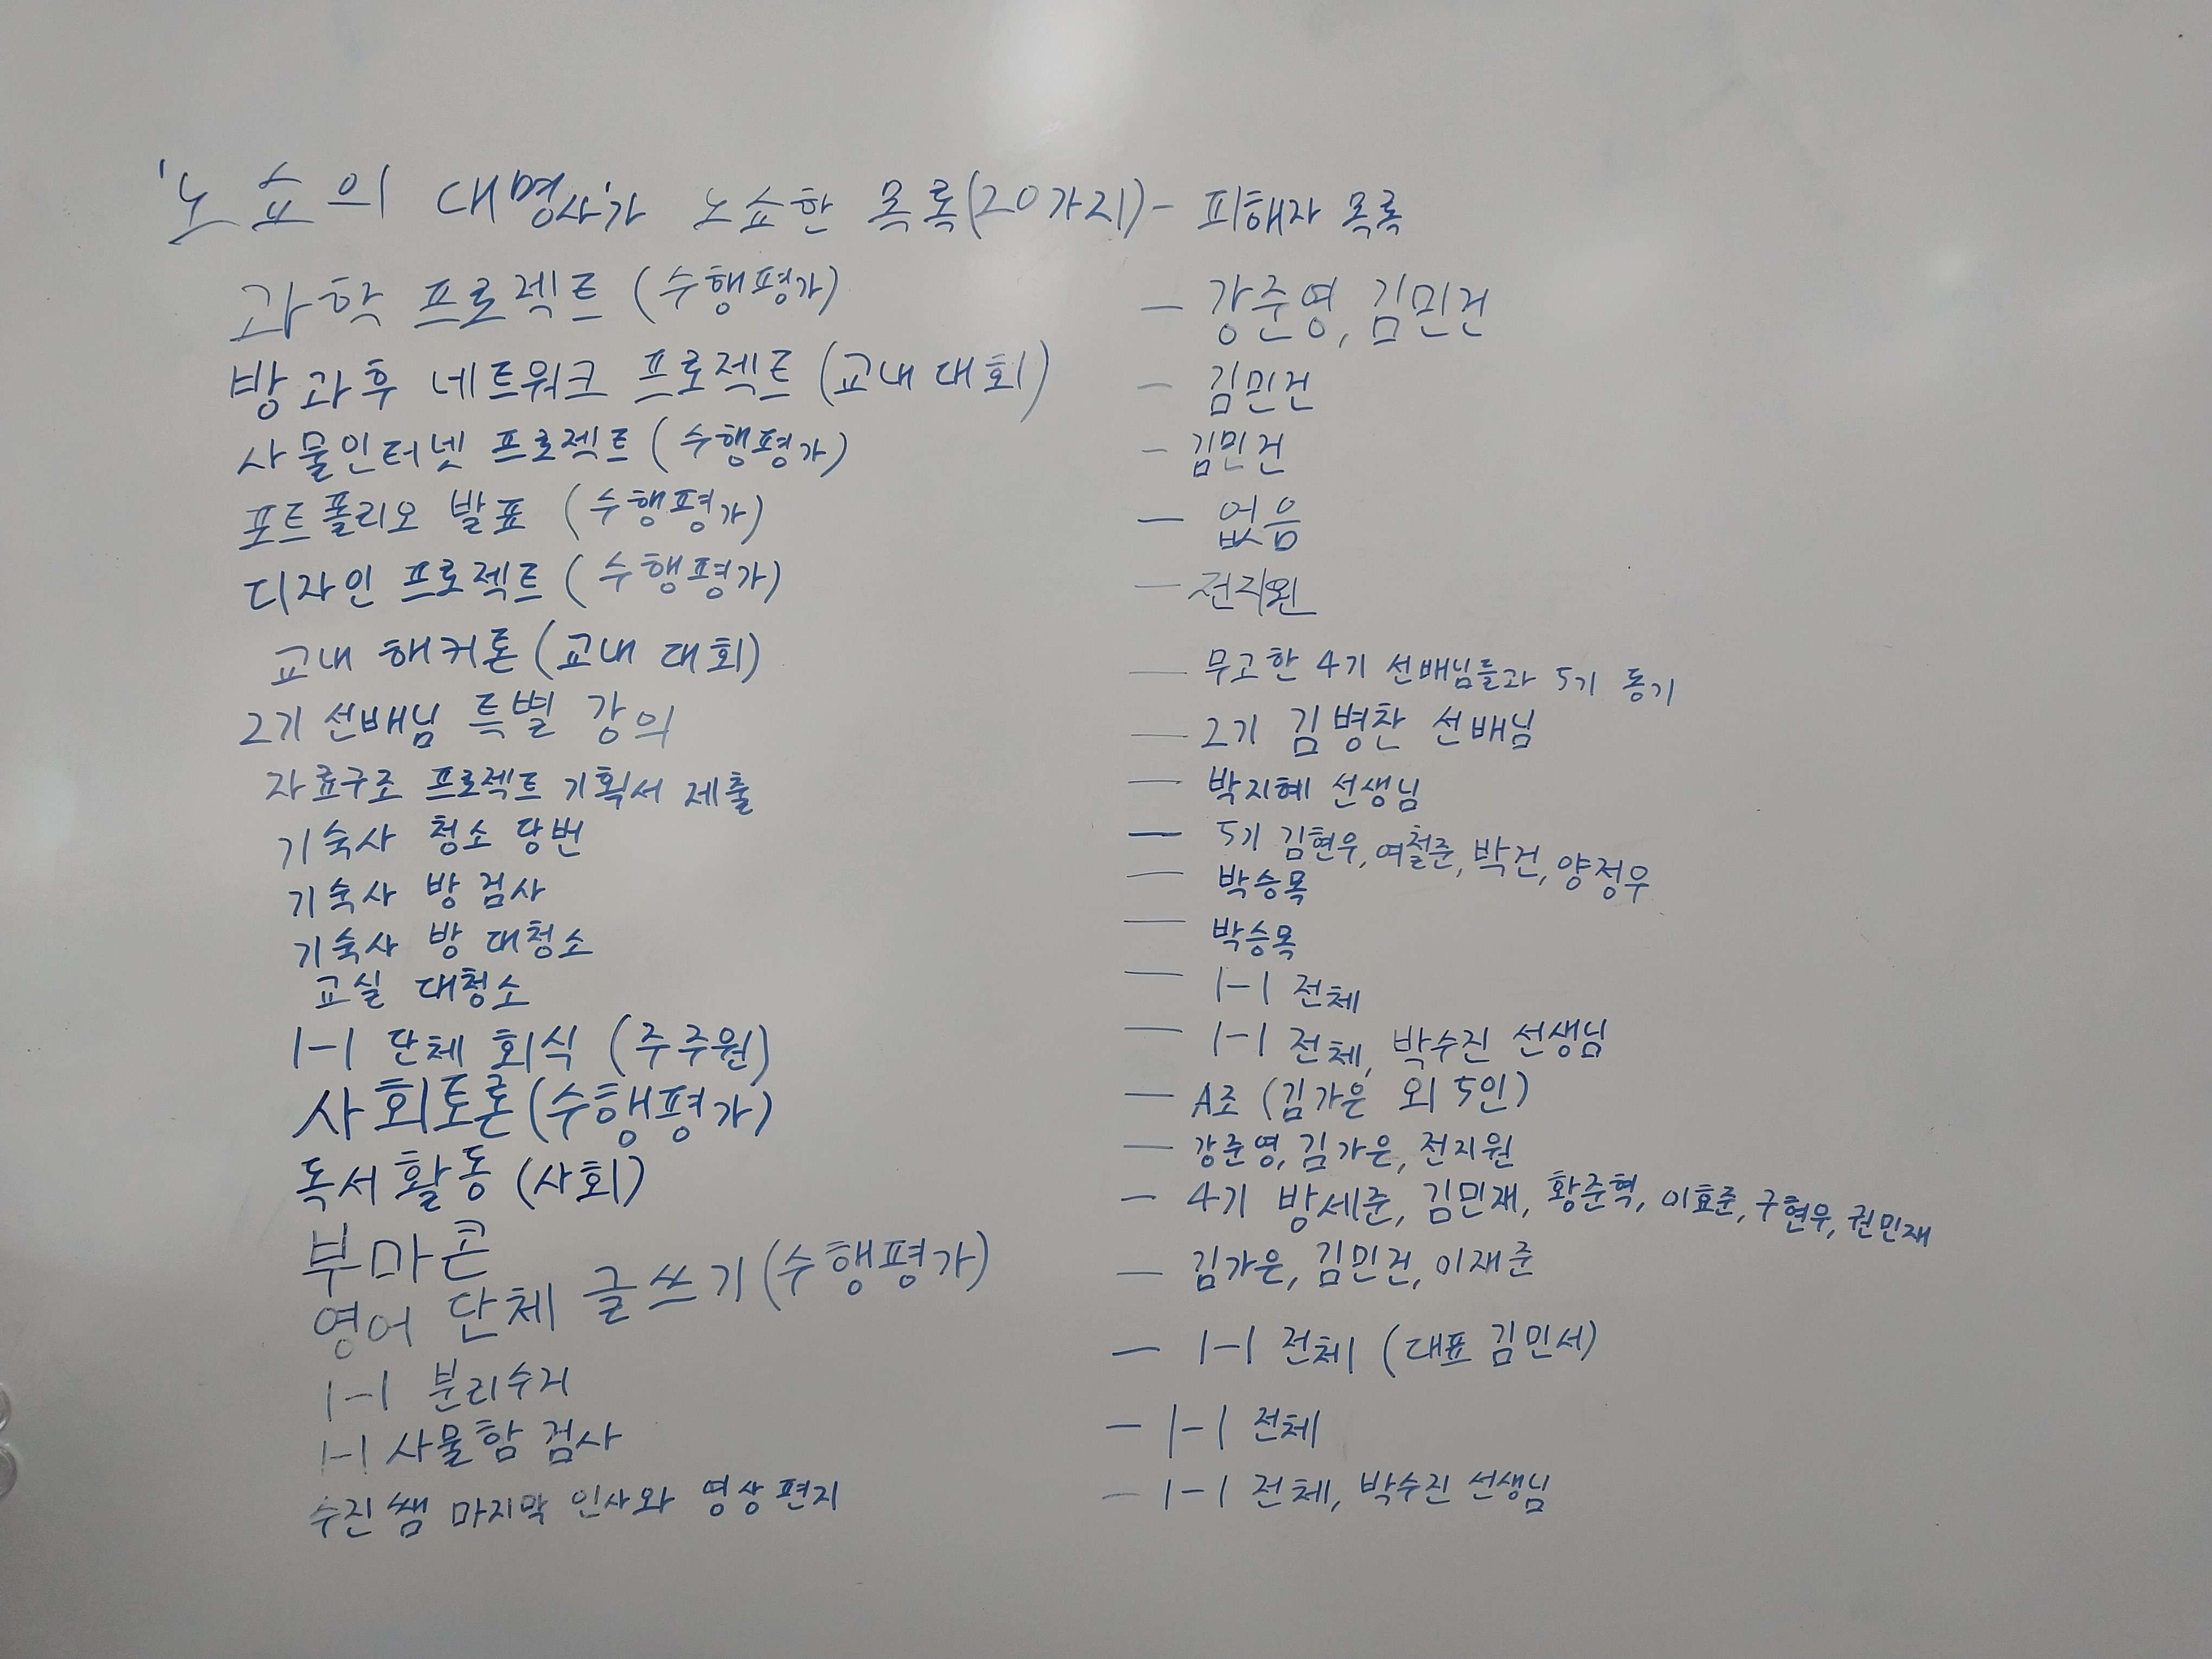 '노쇼의 대명사'가 노쇼한 목록(20가지) - 피해자 목록
과학 프로젝트 (수행평가) - 강준영, 김민건
방과후 네트워크 프로젝트 (교내 대회) - 김민건
사물인터넷 프로젝트 (수행평가) - 김민건
포트폴리오 발표 (수행평가) - 없음
디자인 프로젝트 (수행평가) - 전지원
교내 해커톤 (교내 대회) - 무고한 4기 선배님들과 5기 동기
2기 선배님 특별 강의 - 2기 김병찬 선배님
자료구조 프로젝트 기획서 제출 - 박지혜 선생님
기숙사 청소 당번 - 5기 김현우, 여철준, 박건, 양정우
기숙사 방 검사 - 박승목
기숙사 방 대청소 - 박승목
교실 대청소 - 1-1 전체
1-1 단체 회식 (주주원) - 1-1 전체, 박수진 선생님
사회토론 (수행평가) - A조 (김가은 외 5인)
독서활동 (사회) - 강준영, 김가은, 전지원
부마콘 - 4기 방세준, 김민재, 황준혁, 이효준, 구현우, 권민재
영어 단체 글쓰기 (수행평가) - 김가은, 김민건, 이재준
1-1 분리수거 - 1-1 전체 (대표 김민서)
1-1 사물함 검사 - 1-1 전체
수진쌤 마지막 인사와 영상 편지 - 1-1 전체, 박수진 선생님